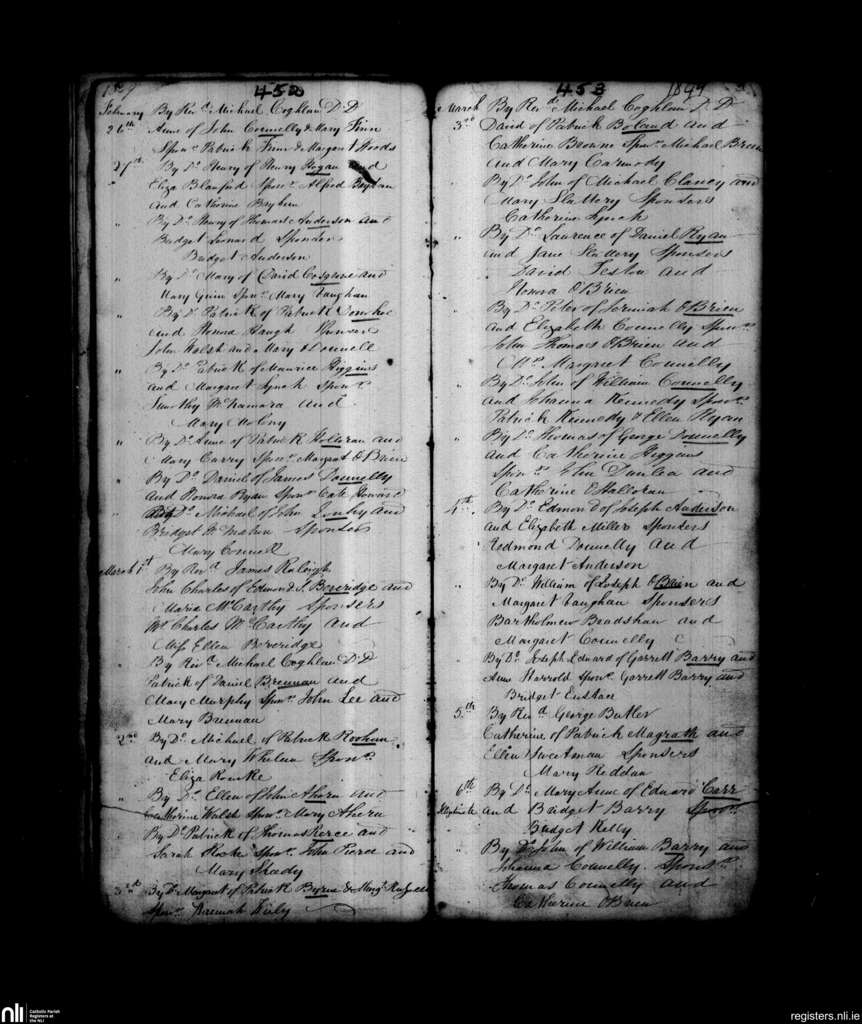 452
February By Revd. Michael Coghlan D.D
26th Anne of John Connelly & Mary Finn
Sponr. Patrick Finn & Margaret Woods
27th By Do. Henry of Henry Hogan and
Eliza Blanford Sponr. Alfred
and Catherine
" By Do. Henry of Thomas Anderson and
Bridget Leonard Sponsers
Bridget Anderson
" By Do. Mary of David Cosgrove and
Mary Sponr. Mary Vaughan
" By Do. Patrick of Patrick
and Honora Haugh Sponsers
John Walsh and Mary
" By Do. Patrick of Maurice Higgins
and Margaret Lynch Sponr.
Timothy McNamara and
Mary
" By Do. Anne of Patrick Holloran and
Mary Carry Sponr. Margaret O'Brien
" By Do. Daniel of James Donnelly
and Honora Ryan Sponr. Cath Howard
By Do. Michael of John and
Bridget McMahon Sponsers
Mary Connell
March 1st By Revd. James Raleigh
John Charles of Edmond J. Bereridge and
Maria McCarthy Sponsers
Mr Charles McCarthy and
Miss Ellen Bereridge
By Revd. Michael Coghlan D.D
Patrick of Daniel Brennan and
Mary Murphy Sponr. John Lee and
Mary Brennan
2nd By Do. Michael of Patrick
and Mary Whelan Sponr.
Eliza Rourke
" By Do. Ellen of John Ahern and
Catherine Walsh Sponr. Mary Ahern
By Do. Patrick of Thomas Pierce and
Sarah Roche Sponr. John Pierce and
Mary Shady
3rd By Do. Margaret of Patrick Byrne & Margt.
Sponr. Hannah Kirby
453 1847
March By Revd. Michael Coghlan D.D
3rd David of Patrick Boland and
Catherine Browne Sponr. Michael Breen
and Mary Carmody
" By Do. John of Michael Clancy and
Mary Slattery Sponsers
Catherine Lynch
" By Do. Laurence of Daniel Ryan
and Jane Slattery Sponsers
David Feston and
Honora O'Brien
" By Do. Peter of Jeremiah O'Brien
and Elizabeth Connelly Sponr.
John Thomas O'Brien and
Mrs. Margaret Connelly
" By Do. John of William Connelly
and Johanna Kennedy Sponr.
Patrick Kennedy & Ellen Ryan
" By Do. Thomas of George Donnelly
and Catherine Higgins
Sponr. John and
Catherine O'Halloran
4th By Do. Edmond of Joseph Anderson
and Elizabeth Miller Sponsers
Redmond Donnelly and
Margaret Anderson
" By Do. William of Joseph O'Brien and
Margaret Vaughan Sponsers
Bartholmew Bradshaw and
Margaret Connelly
" By Do. Joseph Edward of Garrett Barry and
Anne Harrold Sponr. Garrett Barry and
Bridget Eustace
5th By Revd. George Butler
Catherine of Patrick Magrath and
Ellen Sweetman Sponsers
Mary Reddan
6th By Do. Mary Anne of Edward Carr
and Bridget Barry Sponr.
Bridget Kelly
" By Do. John of William Barry and
Johanna Connelly. Sponr.
Thomas Connelly and
Catherine O'Brien
nli Catholic Parish
Registers at
the NLI
registers.nli.ie